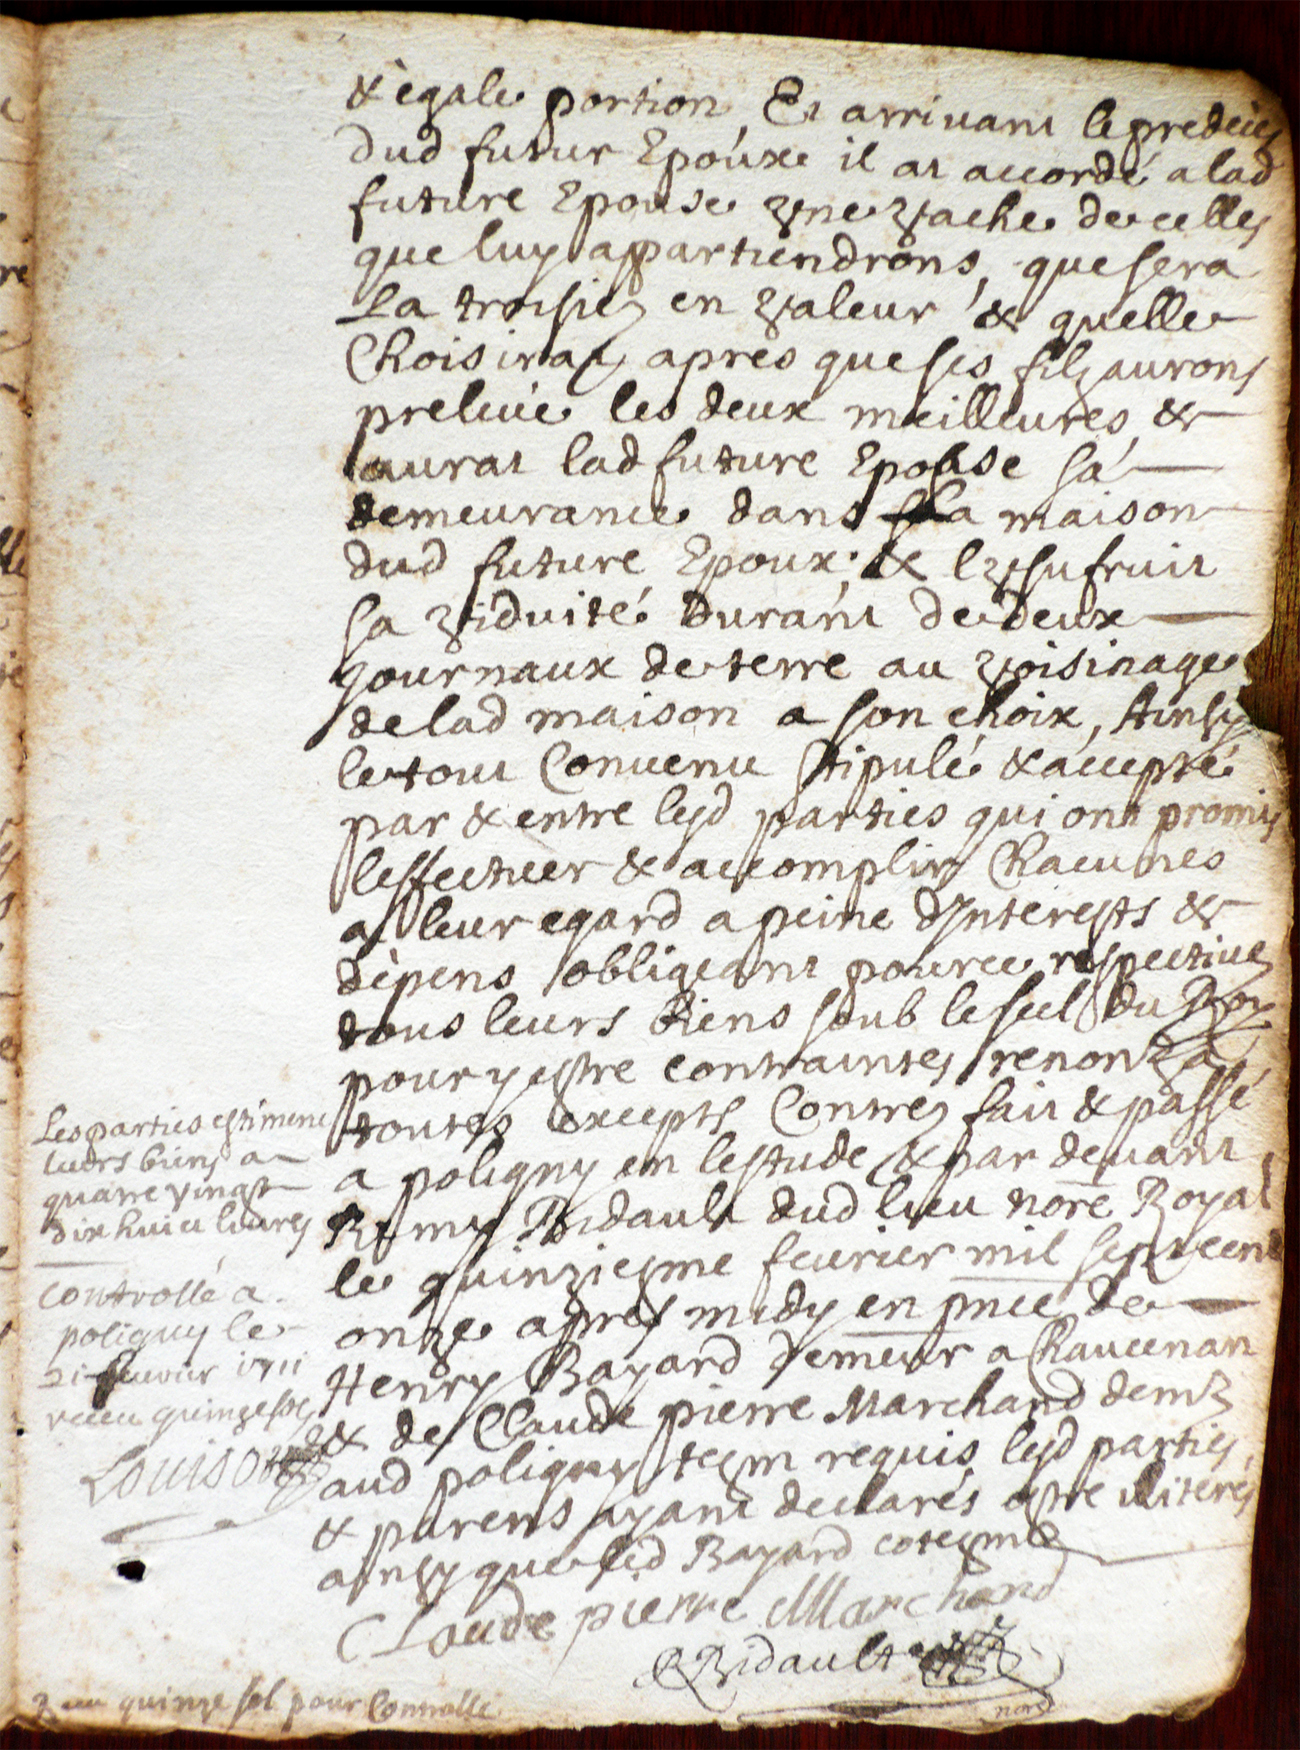 & ègale portion, Et arrivant le predècès
dud futur Epouxe il at accordé a lad
future Epouse vne vache de celles
que luy appartiendrons, que sera
La troisie en valeur & quelle
Choisirat apres que ses filz aurons
prelevé les deux meilleures, &
aurat lad future Epouse sa
demeurance dans la maison
dud future Epoux, & lvsufruit
sa viduité durant de deux
journaux de terre au voisinage
de lad maison a son choix, Ainsy
le tout Convenu stipulé & accepté
par & entre lesd parties qui ont promis
leffectuer & accomplir Chacunes
a leur egard a peine dInterests &
dèpens obligeant pource respective
tous leurs Biens soub le scel du Roy
pour y estre contraintes renonz a
toutes except Contres fait & passé
a poligny en lestude & par devant
Remy Bidault dud lieu nore Royal
le quinziesme fevrier mil sept cent
onze apres midy en pnce de
Henry Bayard demeur a Chaucenan
& de Claude pierre Marchand dem
aud poligny tesm requis lesd parties
& parens ayant declarés estre illiterés
ainsy que led Bayard cotesm
Claude pierre Marchand
R Bidault
nore
Les parties estiment
leurs biens a
quatre vingt
dix huict livres
Controllé a
poligny le
21 fevrier 1711
receu quinze sols
Louis
quinze sol pour Controlle